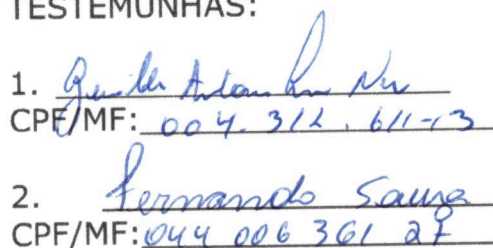 TESTEMUNHAS:
1.
CPF/MF: 004.312.611-13
2. Fernando Sousa
CPF/MF: 044 006 361 27